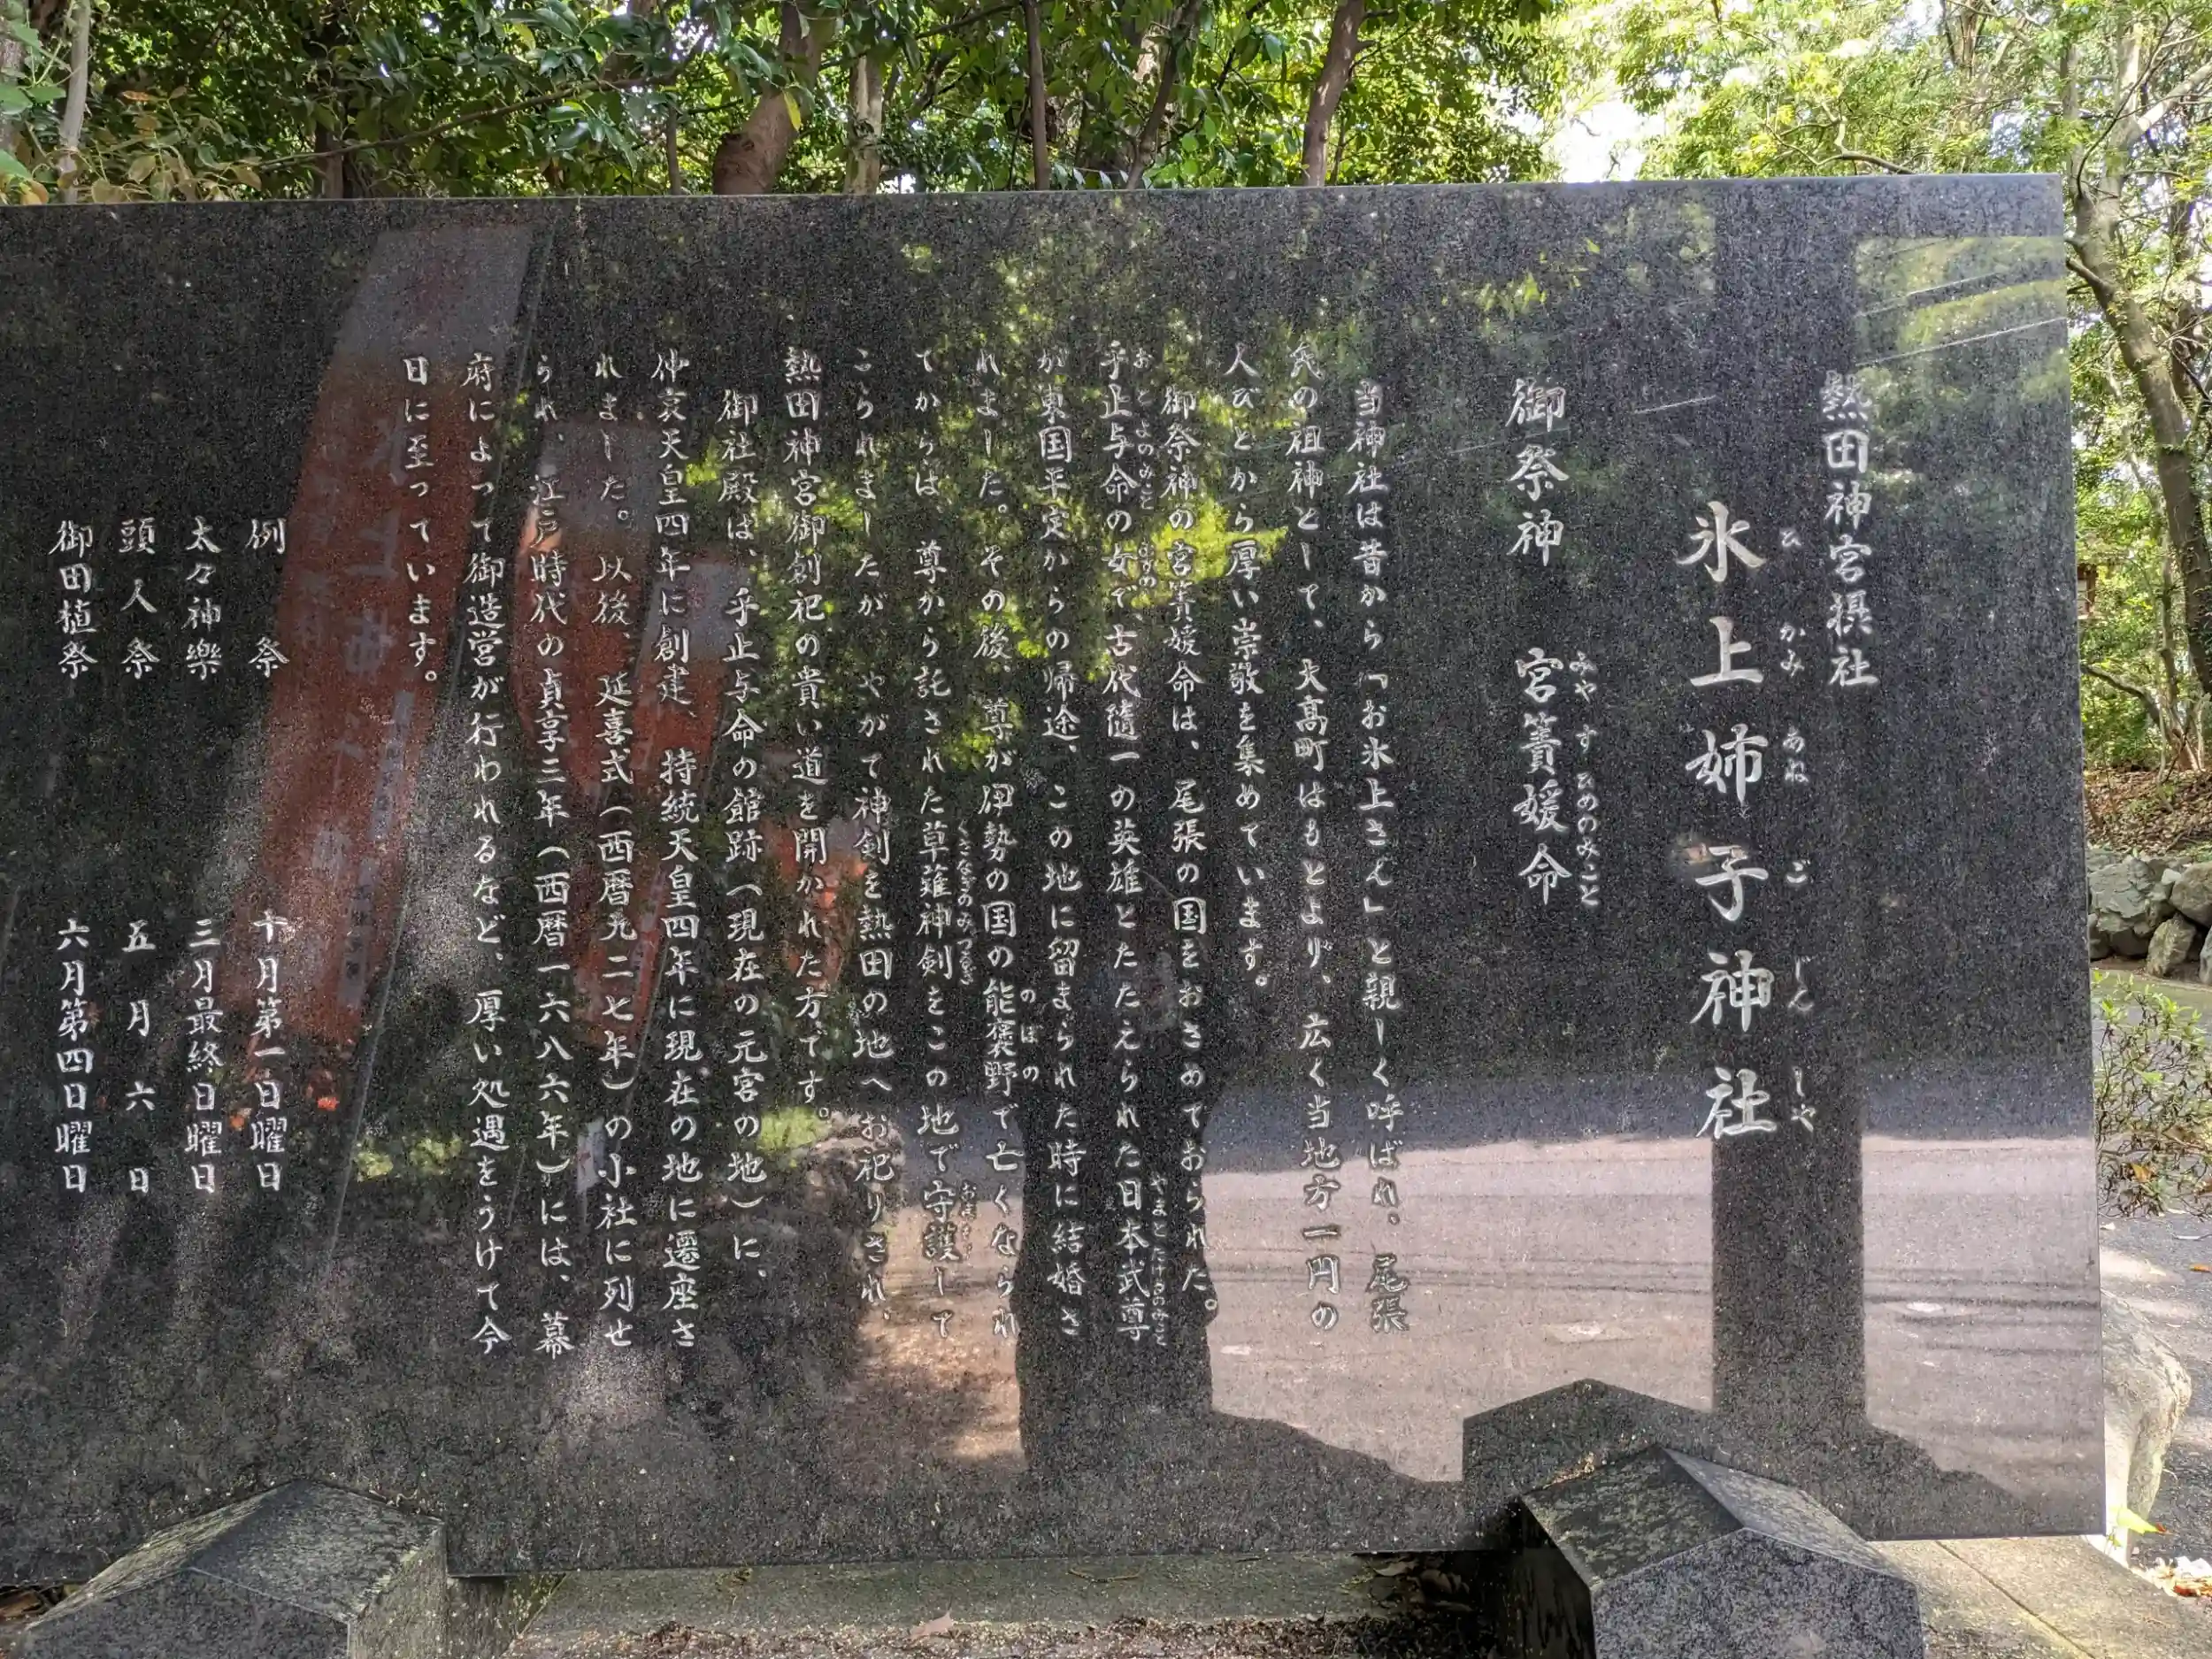 熱田神宮摂社
氷上姉子神社
ひかみあねごじんじや
御祭神　宮簀媛命
みやすひめのみこと
当神社は昔から「お氷上さん」と親しく呼ばれ、尾張
氏の祖神として、大高町はもとより、広く当地方一円の
人びとから厚い崇敬を集めています。
御祭神の宮簀媛命は、尾張の国をおさめておられた。
乎止与命の女で、古代随一の英雄とたたえられた日本武尊
おとよのみこと　むすめ　やまとたけるのみこと
が東国平定からの帰途、この地に留まられた時に結婚さ
れました。その後、尊が伊勢の国の能褒野で亡くなられ
のぼの
てからは、尊から託された草薙神剣をこの地で守護して
くさなぎのみつるぎ
こられましたが、やがて神剣を熱田の地へお祀りされ、
熱田神宮御創祀の貴い道を開かれた方です。
御社殿は、乎止与命の館跡（現在の元宮の地）に、
仲哀天皇四年に創建、持統天皇四年に現在の地に遷座さ
れました。以後、延喜式（西暦九二七年）の小社に列せ
られ、江戸時代の貞享三年（西暦一六八六年）には、幕
府によって御造営が行われるなど、厚い処遇をうけて今
日に至っています。
例祭　十月第一日曜日
太々神樂　三月最終日曜日
頭人祭　五月六日
御田植祭　六月第四日曜日